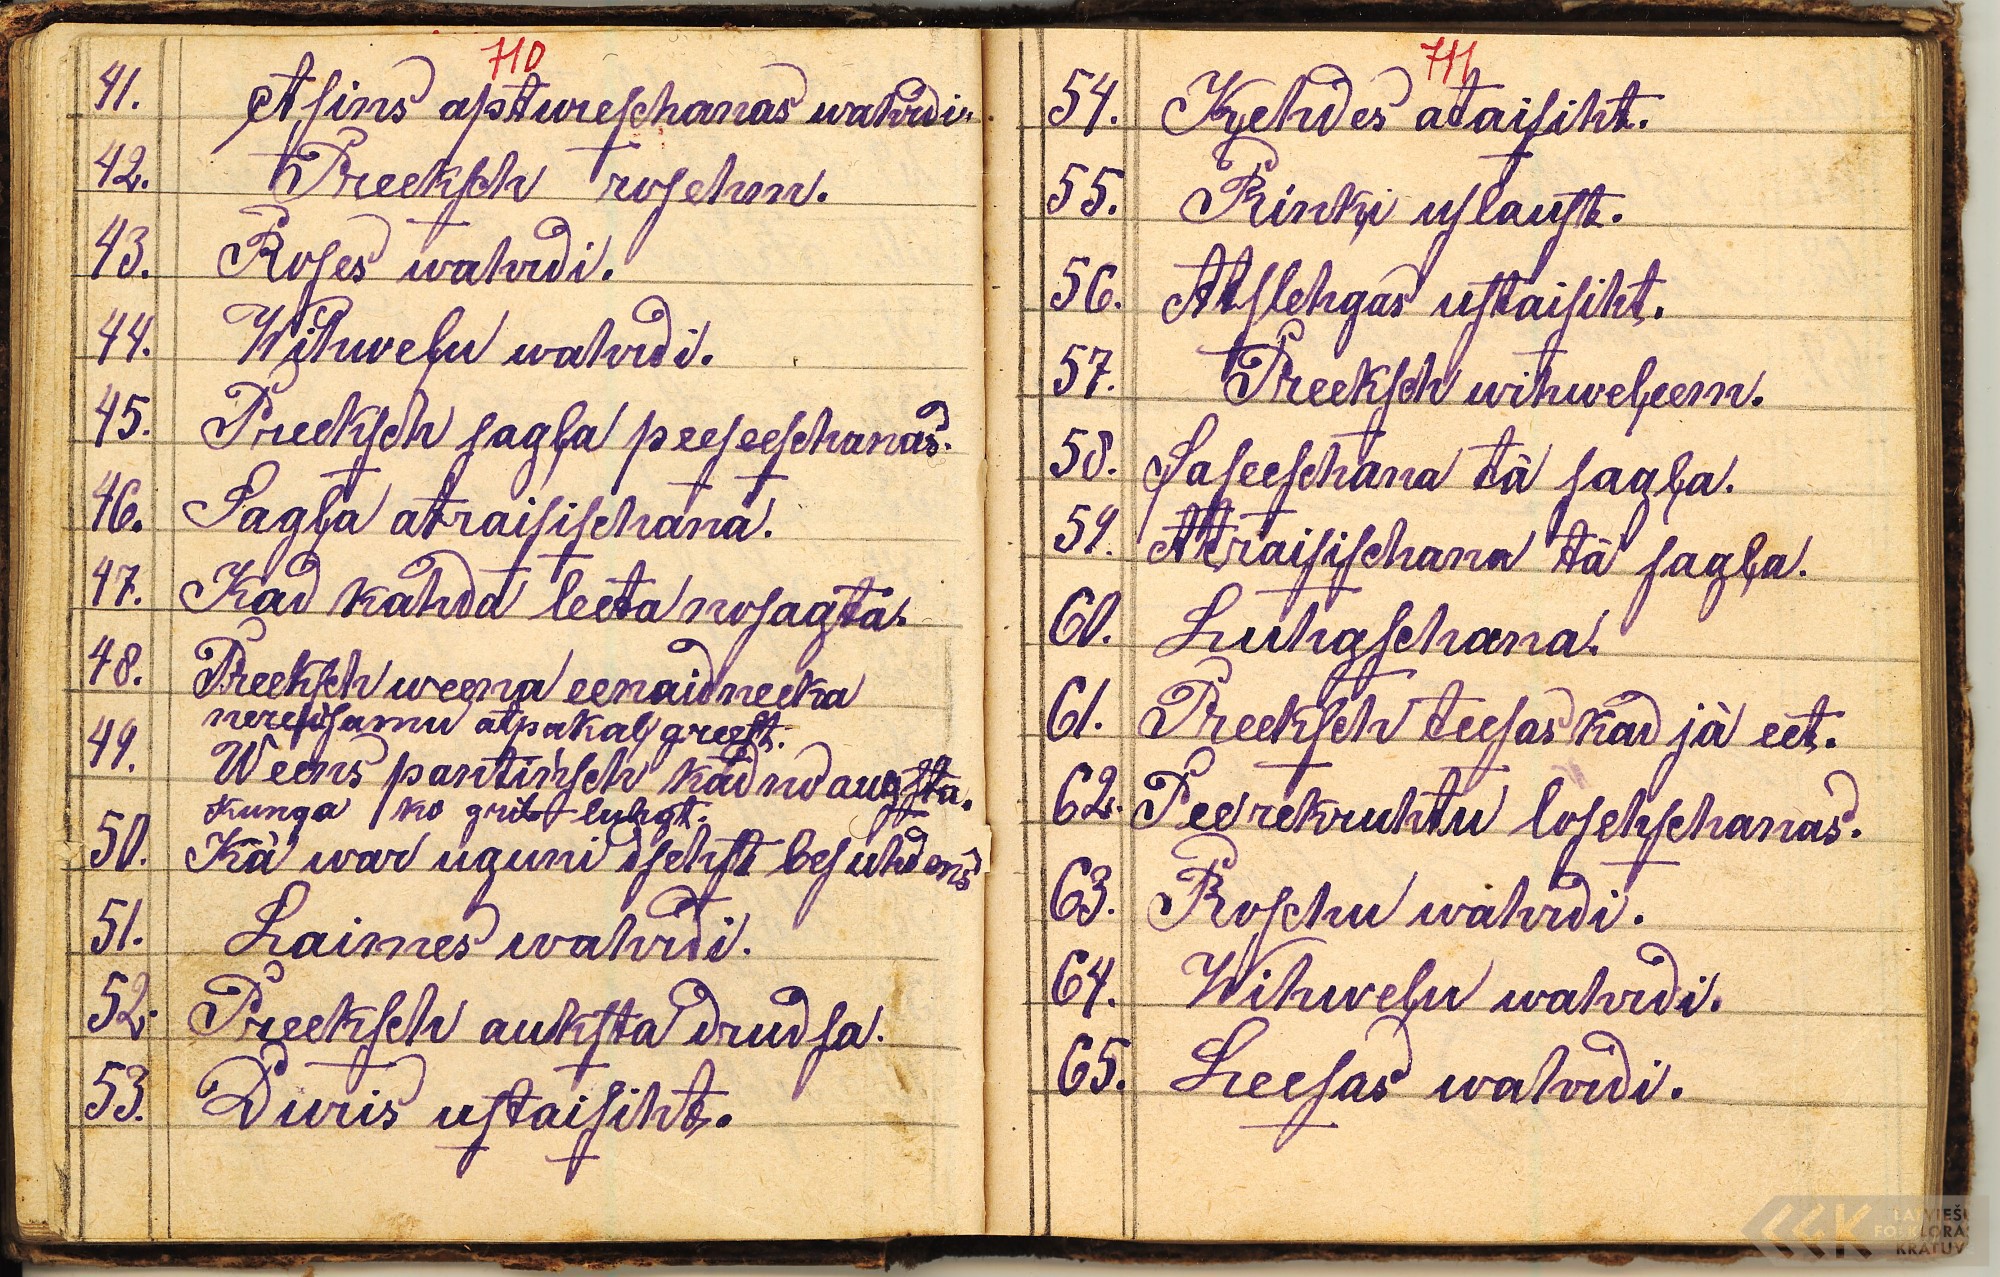 710
41. Asins aptureschanas wahrdi.
42. Preeksch rosehm.
43. Roses wahrdi.
44. Wihweļu wahrdi.
45. Preeksch sagļa peeseeschanas.
46. Sagļa atraisischana.
47. Kad kahda leeta nosagta.
48. Preeksch weena eenaidneeka
neredsamu atpakaļ greest.
49. Weens pantinsch kad no augsta.
kunga ko grib luhgt.
50. Kà war uguni dsehst bes uhdens
51. Laimes wahrdi.
52. Preeksch auksta drudsa.
53. Duris ustaisiht.
711
54. Ķehdes ataisiht.
55. Rinķi uslaust.
56. Atslehgas ustaisiht.
57. Preeksch wihweļeem.
58. Saseeschana tà sagļa.
59. Atraisischana tà sagļa.
60. Luhgschana.
61. Preeksch teesas kad jà eet.
62. Pee rekruhtu losehschanas.
63. Roschu wahrdi.
64. Wihweļu wahrdi.
65. Leesas wahrdi.
LATVIEŠU
FOLKLORAS
KRATUV